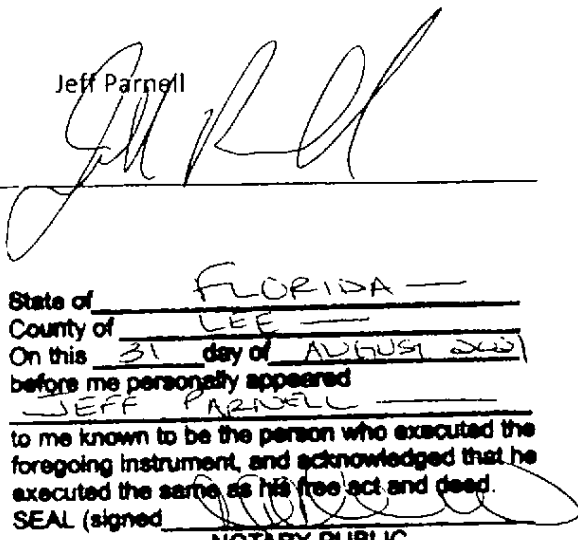 Jeff Parnell
State of FLORIDA —
County of LEE —
On this 31 day of AUGUST 2021
before me personally appeared
JEFF PARNELL —
to me known to be the person who executed the
foregoing instrument, and acknowledged that he
executed the same as his free act and deed.
SEAL (signed
NOTARY PUBLIC